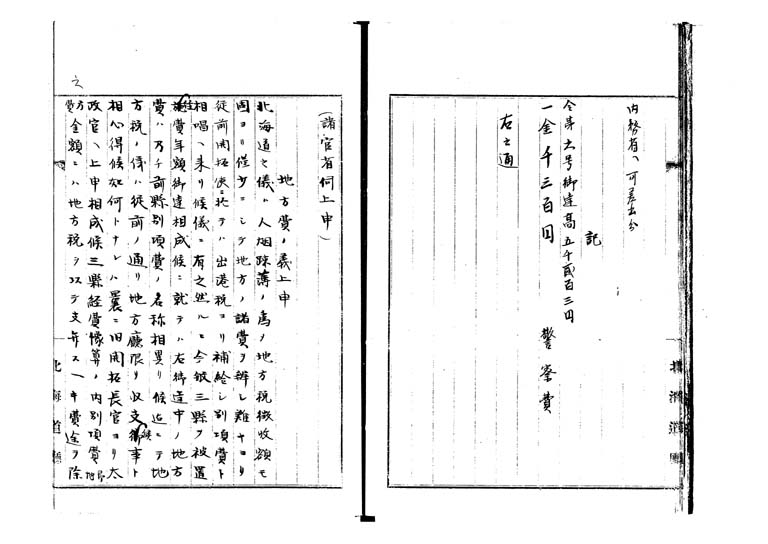 内務省ヘ可差出分
記
今第五号御達高五千弐百三円
一金千三百円 警察費
右之通
(諸官省伺上申)
地方費ノ義上申
北海道之儀ハ人烟疎薄ノ為メ地方税徴収額モ
固ヨリ僅少ニシテ地方ノ諸費ヲ弁シ難キヨリ
従前開拓使ニ於テハ出港税ヨリ補給シ別項費ト
相唱ヘ来リ候儀ニ有之然ルニ今般三県ヲ被置
費年額御達相成候ニ就テハ右御達中ノ地方
費ハ乃チ前県別項費ノ名称相異リ候迄ニテ地
方税ノ儀ハ従前ノ通リ地方庁限リ収支候事ト
相心得候如何トナレハ曩ニ旧開拓長官ヨリ太
政官ヘ上申相成候三県経費予算ノ内別項費
金額ニハ地方税ヲ以テ支弁スヘキ費途ヲ除
之
北海道